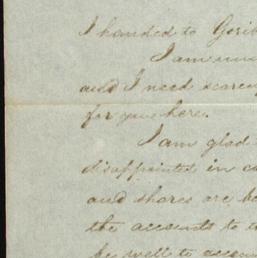 I handed to
I am
and I need
for you here.
I am glad
disappointed in
and shares are
the accounts to
be well to